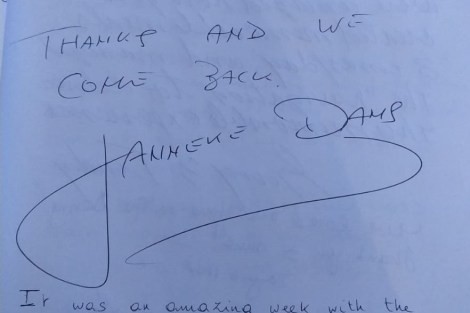 THANKS AND WE
COME BACK.
JANNEKE DAMS
It was an amazing week with the